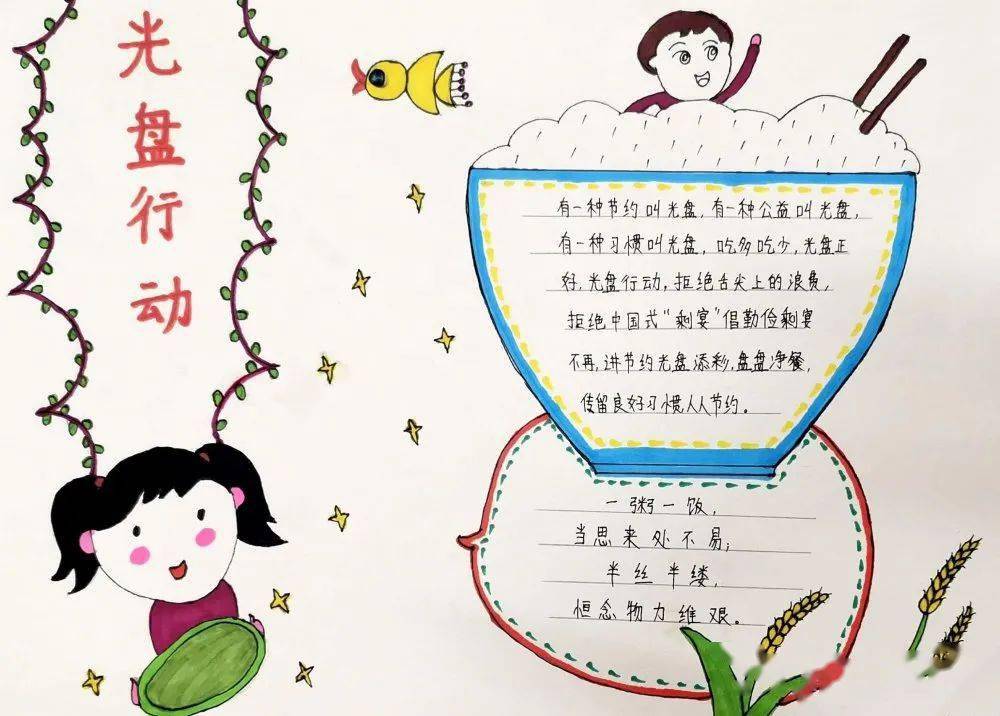 光盘行动
有一种节约叫光盘，有一种公益叫光盘，
有一种习惯叫光盘，吃多吃少，光盘正
好，光盘行动，拒绝舌尖上的浪费，
拒绝中国式“剩宴”倡勤俭剩宴
不再，进节约光盘添彩，盘盘净餐，
传留良好习惯人人节约。
一粥一饭，
当思来处不易；
半丝半缕，
恒念物力维艰。